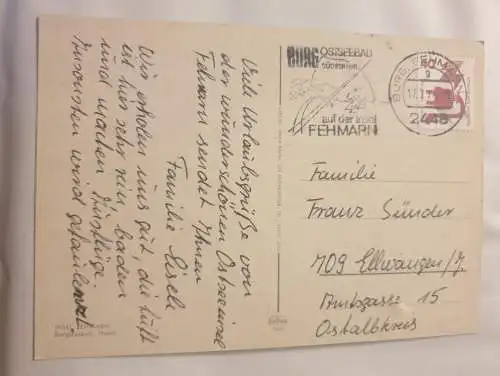 Viele Urlaubsgrüße von
der wunderschönen Ostseeinsel
Fehmarn sendet Ihnen
Familie Eisele
Wir erholen uns gut, die Luft
ist hier sehr rein, baden
und machen Ausflüge
Ansonsten wird gefaulenzt.
BURG OSTSEEBAD
SÜDSTRAND
auf der Insel
FEHMARN
BURG, FEHMARN
2448
Familie
Franz Sünder
709 Ellwangen/J.
Amtsgasse 15
Ostalbkreis
INSEL FEHMARN